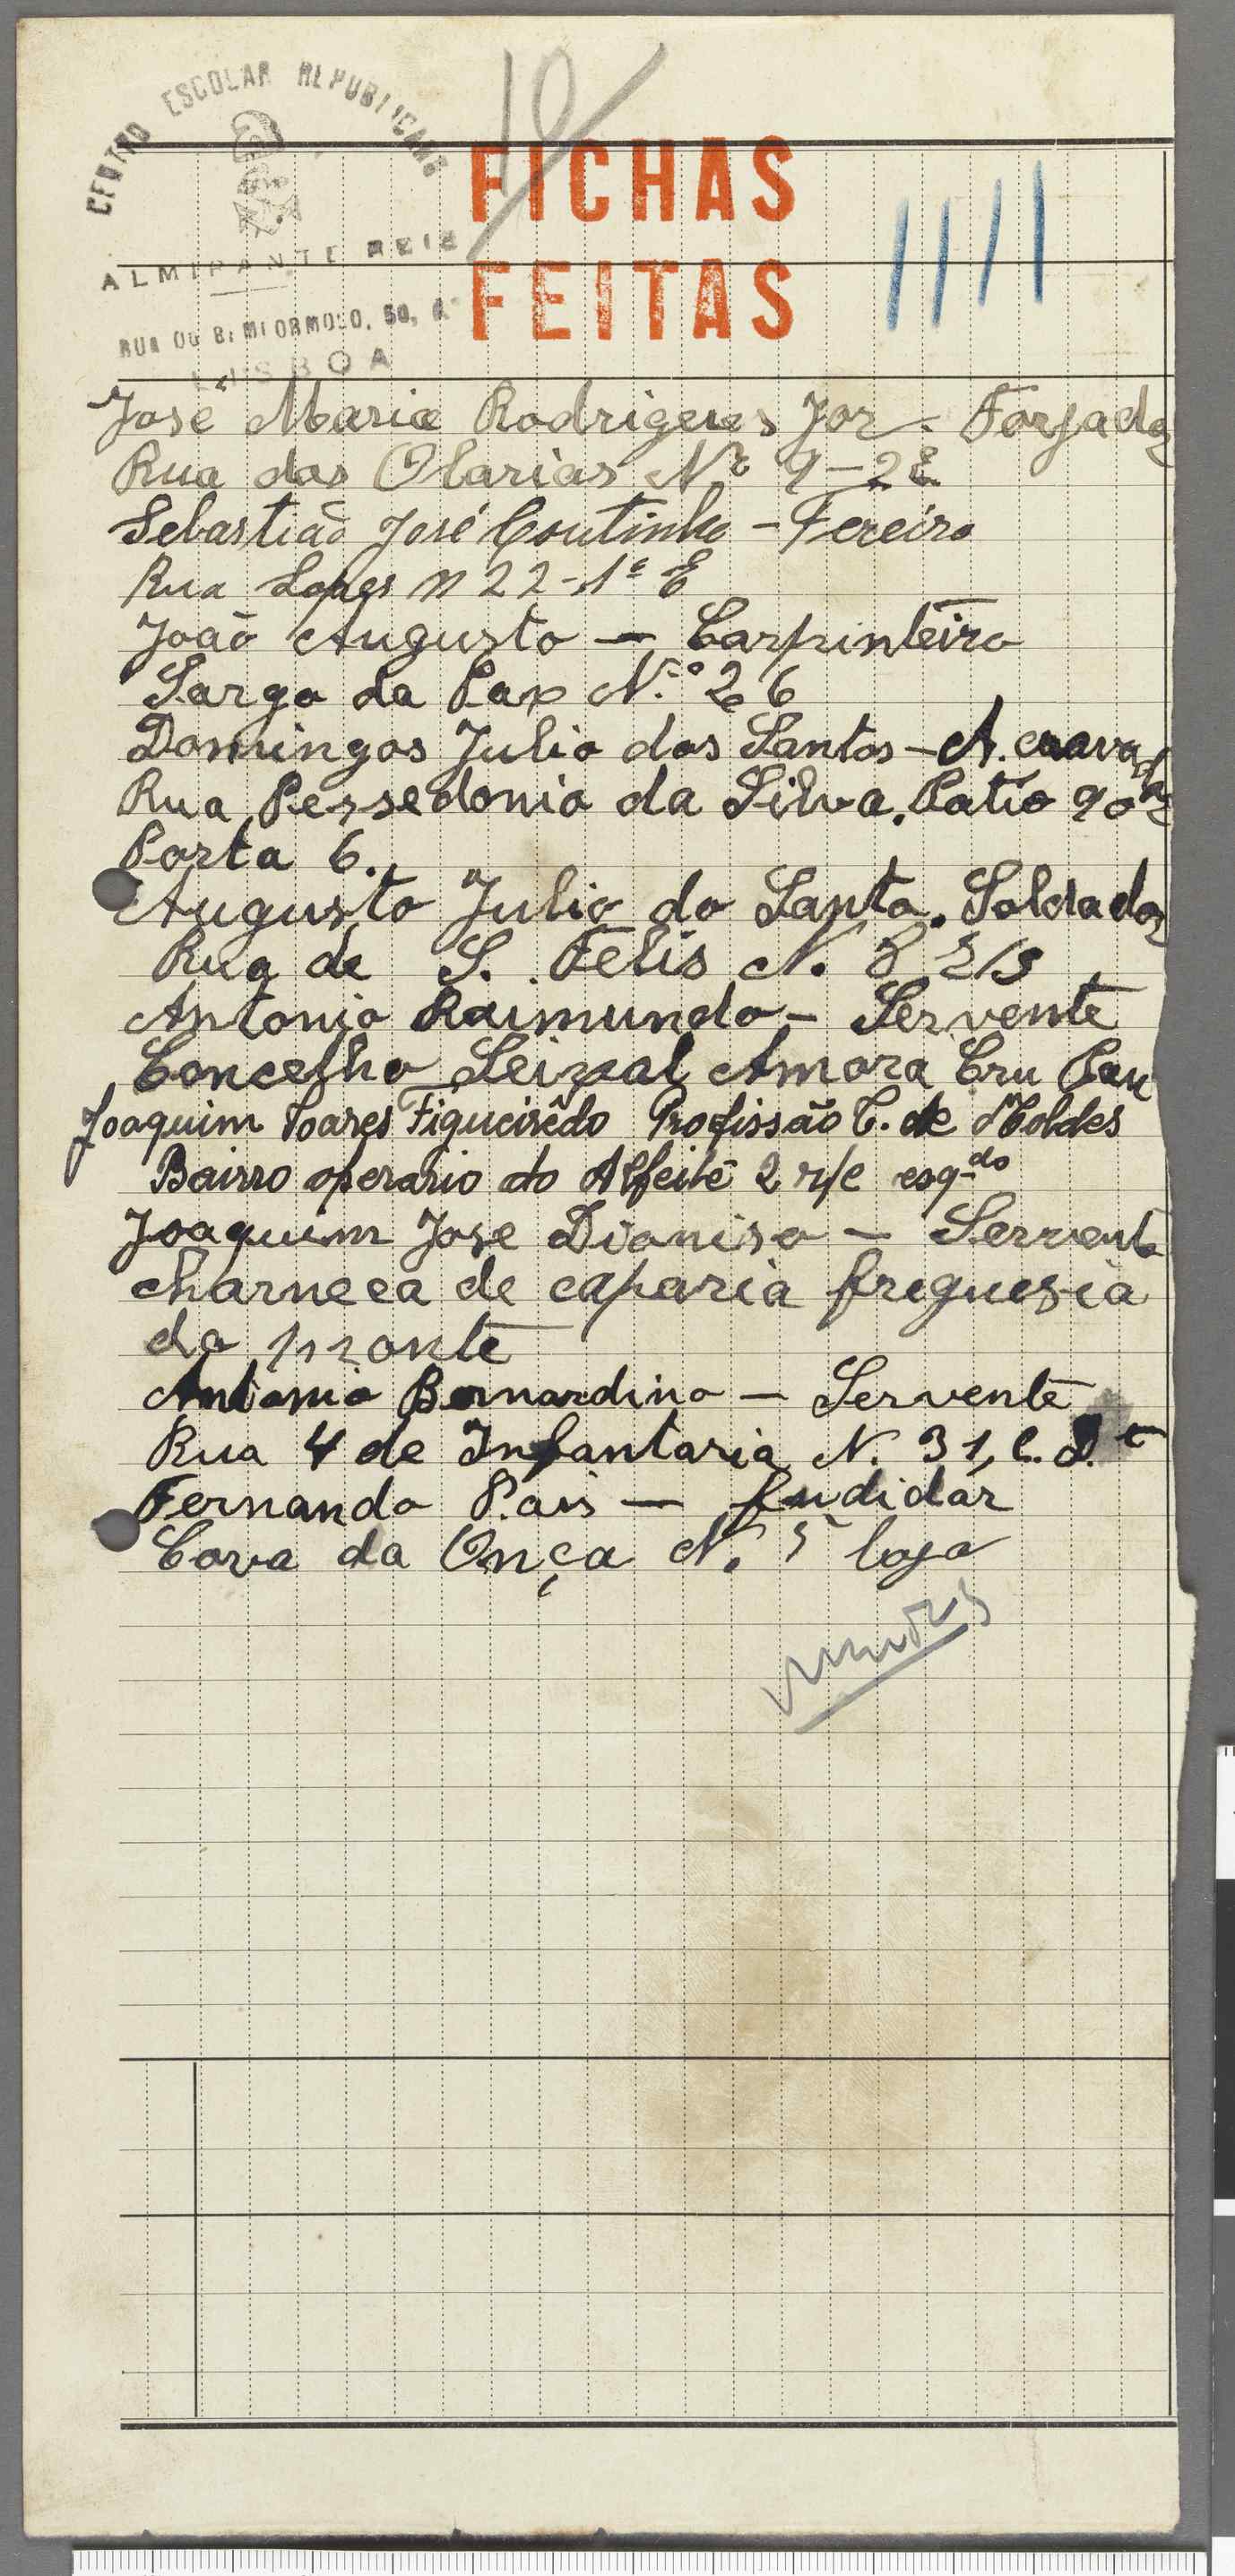 CENTRO ESCOLAR REPUBLICANO
ALMIRANTE REIS
RUA DO BEMFORMOSO, 50, 
LISBOA
10
FICHAS
FEITAS
José Maria Rodrigues Jor - Forjador
Rua das Olarias Nº 9-2 E
Sebastião José Coutinho - Fereiro
Rua Lopes n 22-1º E
João Augusto - Carpinteiro
Largo da Pax N.º 26
Domingos Julio dos Santos - A. cravador
Rua Pessedonio da Silva. Patio 90
Porta 6.
Augusto Julio do Santo. Soldador
Rua de S. Felis N. 8
Antonio Raimundo - Servente
Concelho Seixal Amora Cru Pau
Joaquim Soares Figueirêdo Profissão C. de Moldes
Bairro operario do Alfeite 2 r/c esq-do
Joaquim Jose Dioniso - Servente
charneca de caparia freguesia
do monte
Antonio Bernardino - Servente
Rua 4 de Infantaria N. 31,
Fernando Pais - fudidor
Cova da Onça N. 5 loja